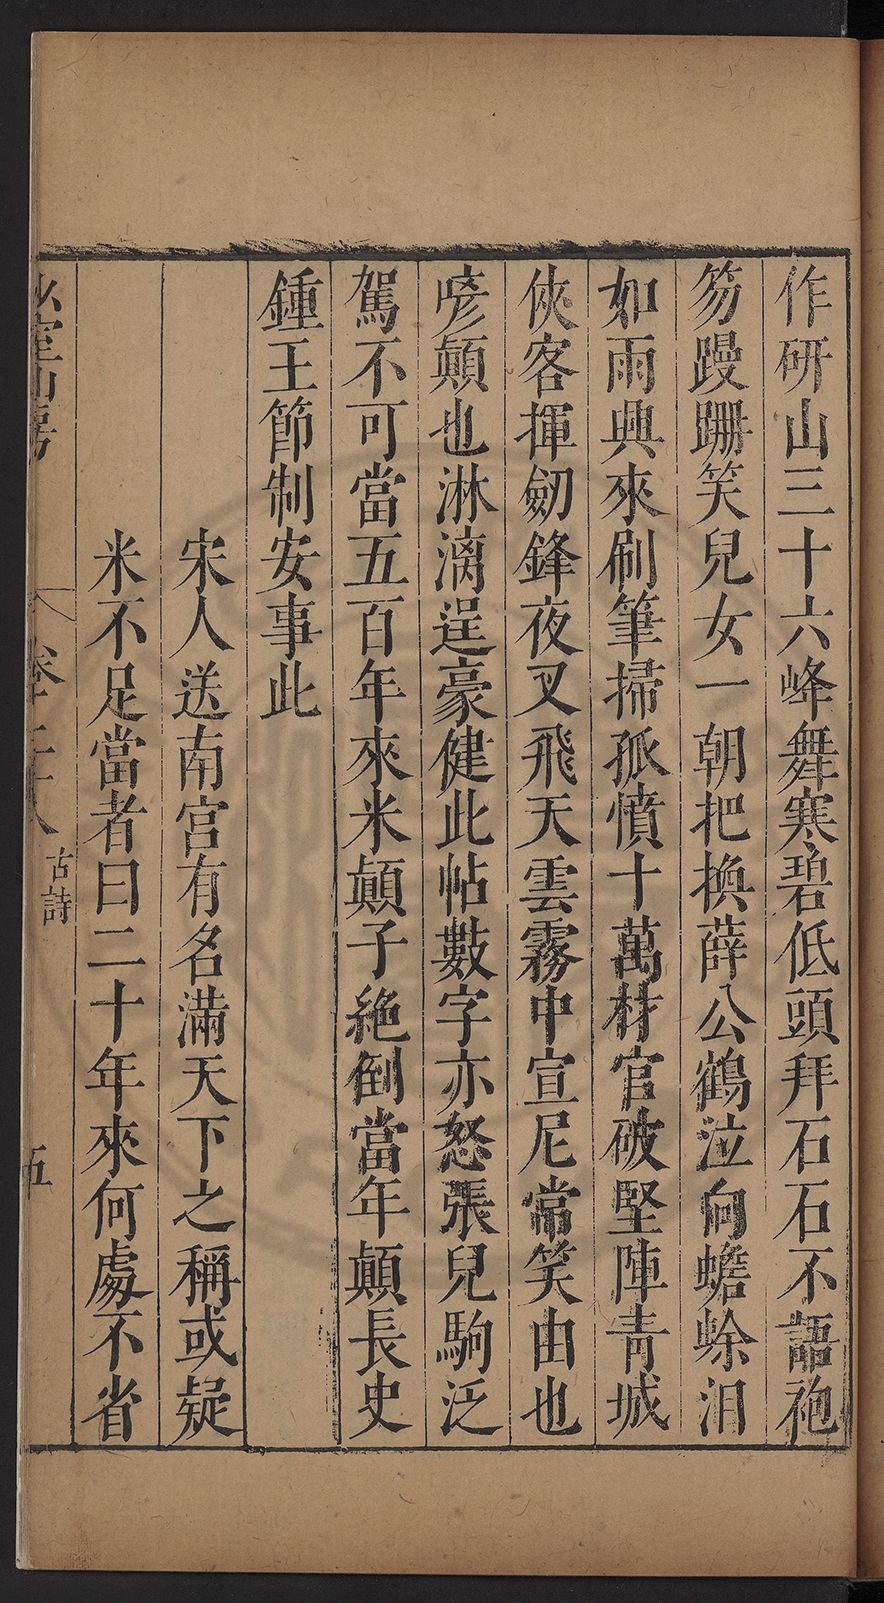 作研山三十六峰舞寒碧低頭拜石石不語袍
笏蹣跚笑兒女一朝把換薛公鶴泣向蟾蜍泪
如雨興來刷筆掃孤憤十萬材官破堅陣青城
俠客揮劒鋒夜叉飛天雲霧中宣尼常笑由也
喭顛也淋漓逞豪健此帖數字亦怒張兒駒泛
駕不可當五百年來米顛子絶倒當年顛長史
鍾王節制安事此
宋人送南宫有名滿天下之稱或疑
米不足當者曰二十年來何處不省
古詩
五